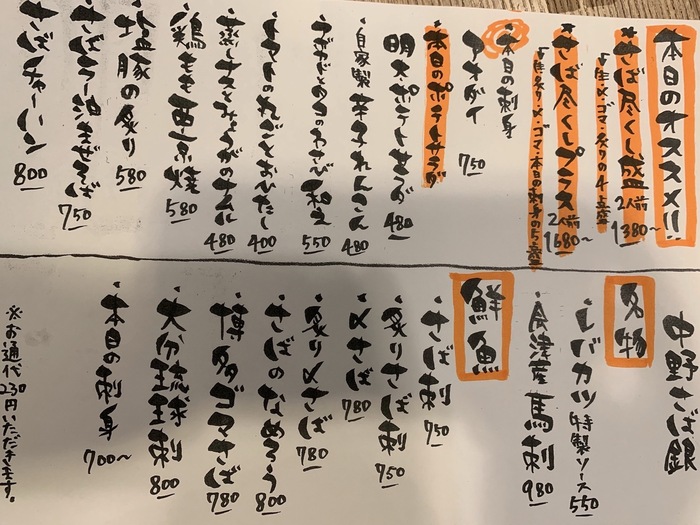 本日のオススメ!!
・さば尽くし盛 2人前 1380〜
↓生・〆・ゴマ・炙りの4点盛
・さば尽くしプラス 2人前 1680〜
↓生・炙り・〆・ゴマ・本日の刺身の5点盛
・本日の刺身
アオダイ 750
・本日のポテトサラダ
明太ポテトサラダ 480
・自家製 辛子れんこん 480
・うずらとタコのわさび和え 550
・トマトの丸ごとおひたし 400
・蒸しナスとみょうがのナムル 480
・鶏もも西京焼 580
・塩豚の炙り 580
・さばラー油まぜそば 750
・さばチャーハン 800
中野さば銀
名物
・レバカツ 特製ソース 550
・会津産 馬刺 980
鮮魚
・さば刺 750
・炙りさば刺 750
・〆さば 780
・炙り〆さば 780
・さばのなめろう 800
・博多ゴマさば 780
・大分琉球王刺 800
・本日の刺身 700〜
※お通代230円いただきます。